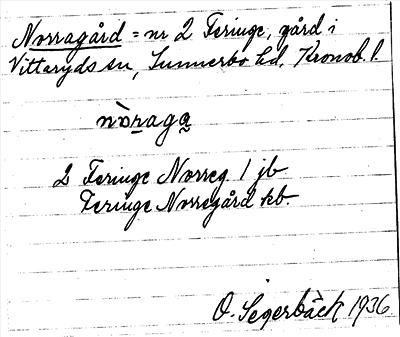 Norragård = nr 2 Feringe, gård i
Vittaryds sn, Sunnerbo hd, Kronob. l.
nòraga
2 Feringe Norreg. 1 jb
Feringe Norregård kb.
O. Segerbäck 1936.